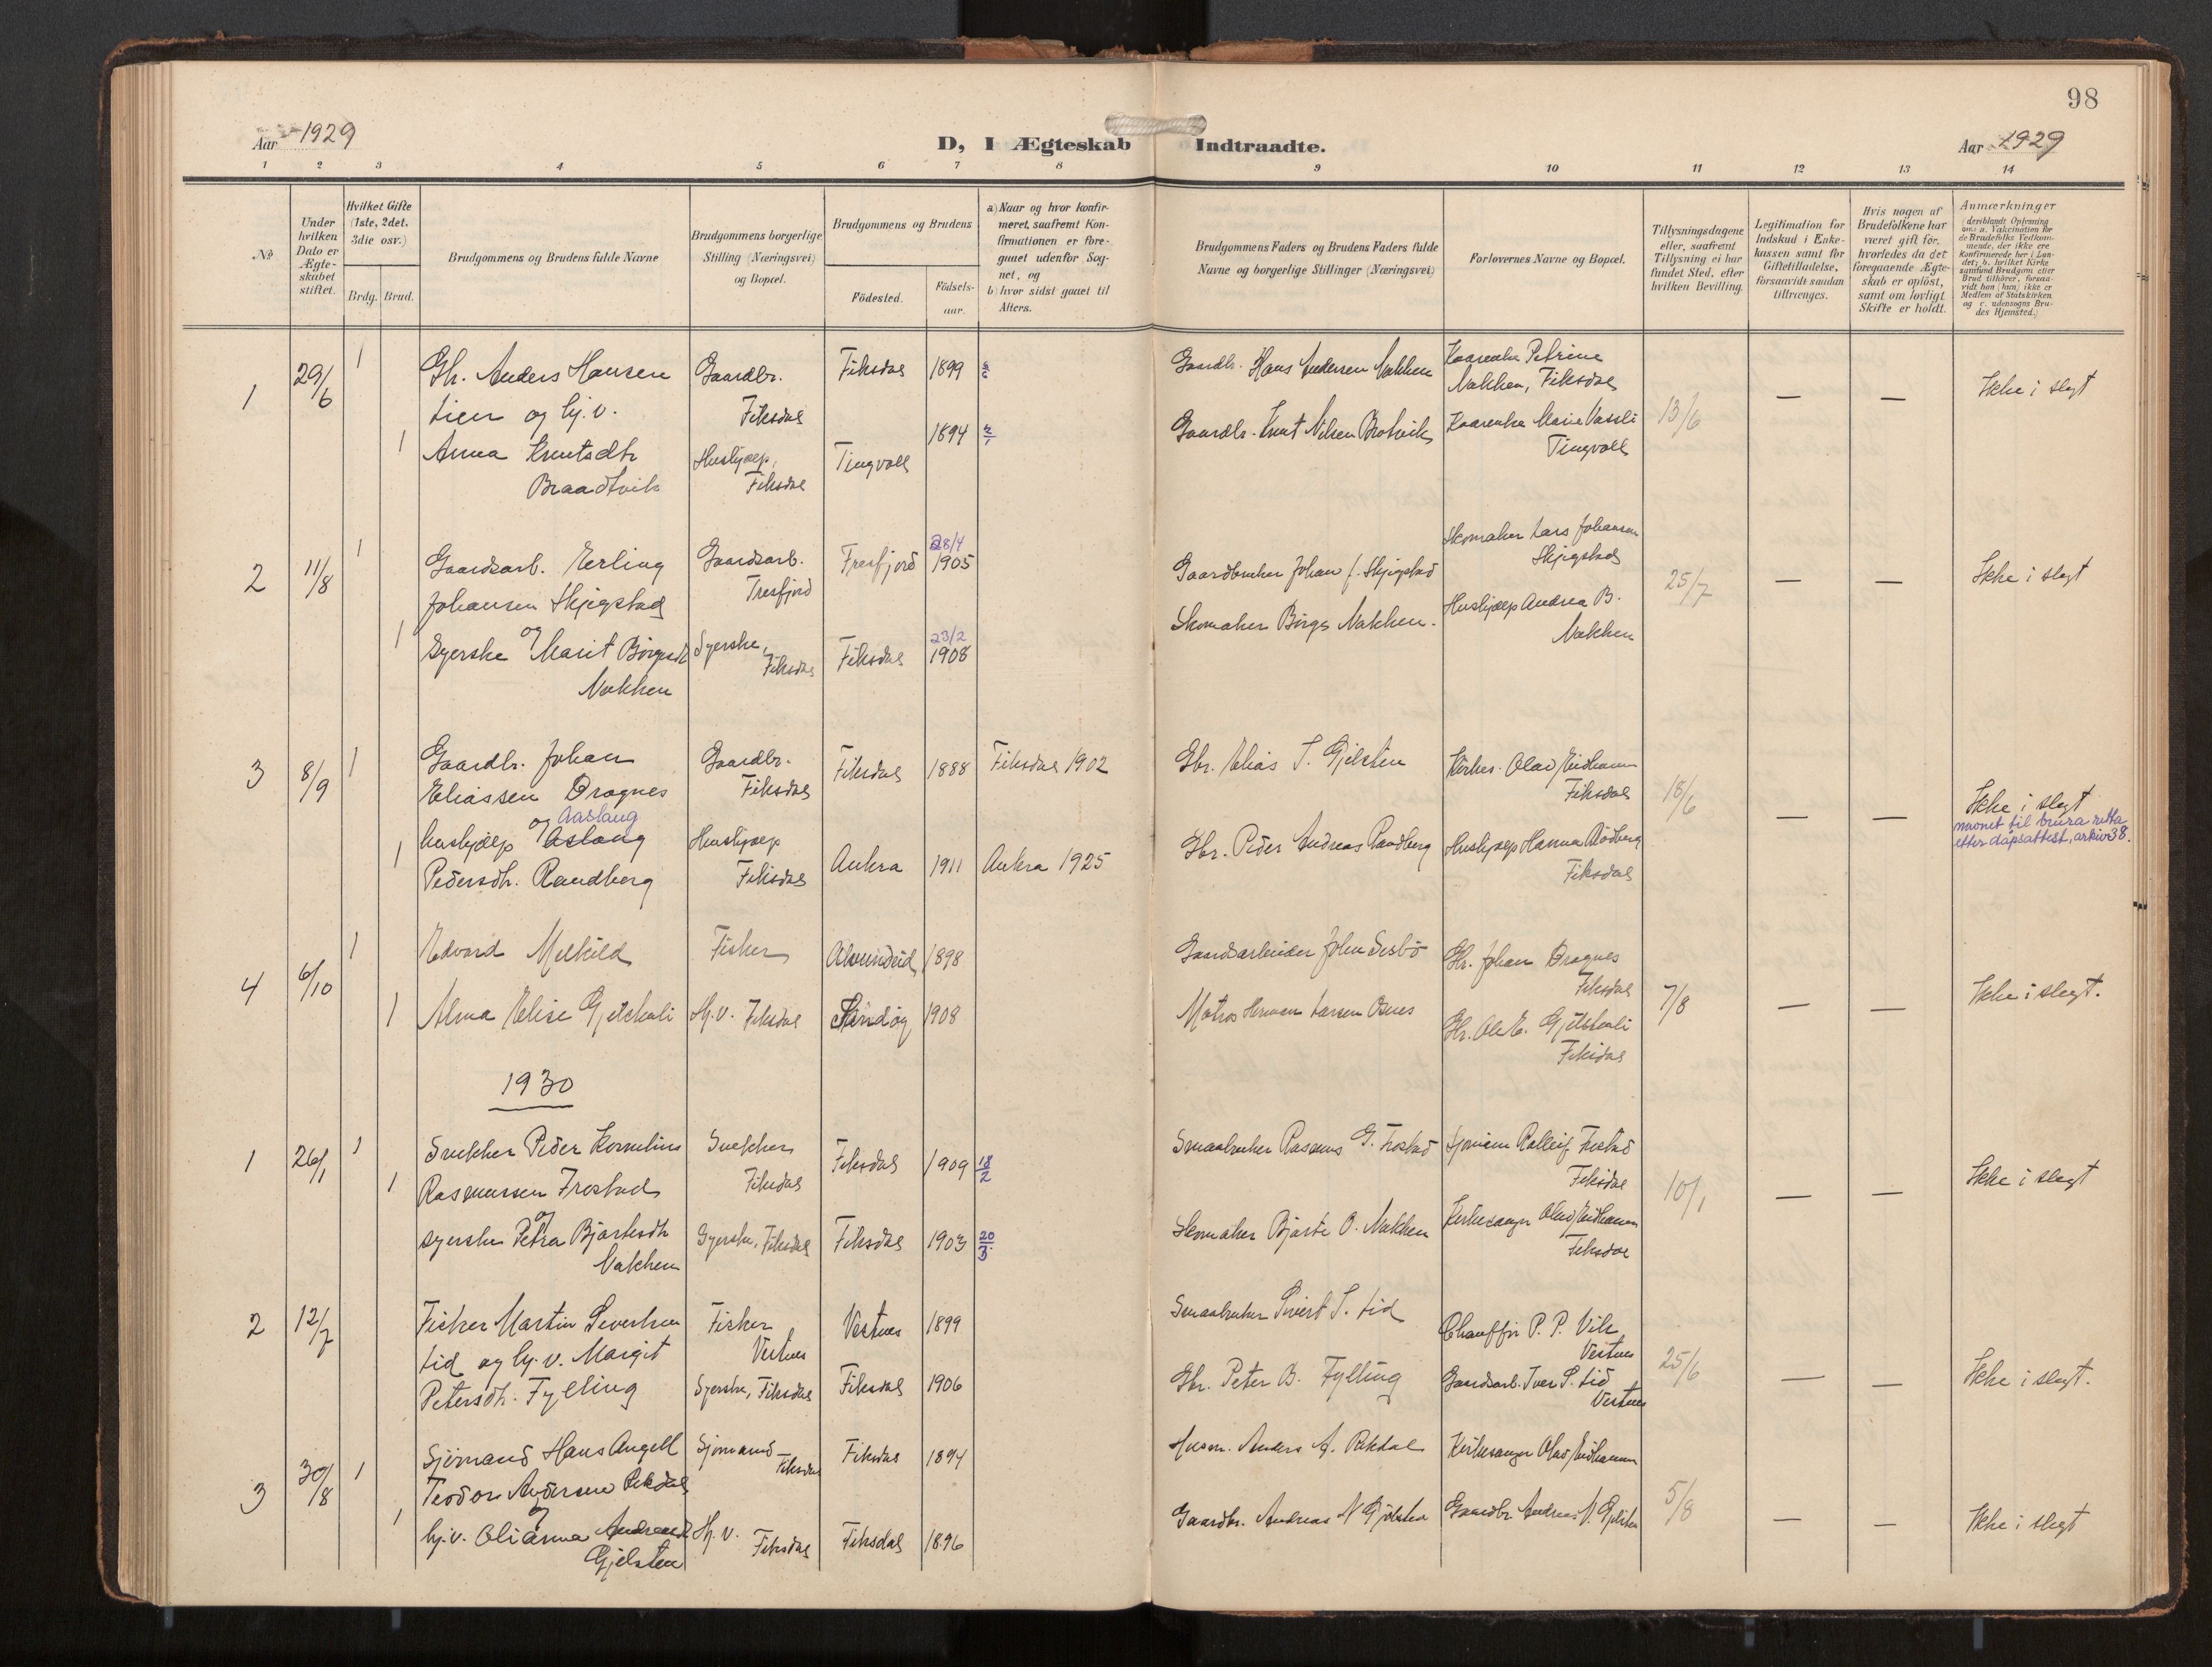 98
Aar 1929
D, I Ægteskab Indtraadte.
Aar 1929
1 2 3 4 5 6 7 8 9 10 11 12 13 14
No
Under hvilken Dato er Ægteskabet stiftet.
Hvilket Gifte (1ste, 2det, 3die osv.)
Brdg. Brud.
Brudgommens og Brudens fulde Navne
Brudgommens borgerlige Stilling (Næringsvei) og Bopæl.
Brudgommens og Brudens
Födested.
Födsels-aar.
a) Naar og hvor konfir-
meret, saafremt Kon-
firmationen er fore-
gaaet udenfor Sog-
net, og
b) hvor sidst gaaet til
Alters.
Brudgommens Faders og Brudens Faders fulde
Navne og borgerlige Stillinger (Næringsvei)
Forlovernes Navne og Bopæl.
Tillysningsdagene
eller, saafremt
Tillysning ei har
fundet Sted, efter
hvilken Bevilling.
Legitimation for
Indskud i Enke-
kassen samt for
Giftetilladelse,
forsaavidt saadan
tiltrænges.
Hvis nogen af
Brudefolkene har
været gift för,
hvorledes da det
foregaaende Ægte-
skab er oplöst,
samt om lovligt
Skifte er holdt.
Anmærkninger
(deriblandt Oplysning
om: a. Vakcination for
de Brudefolks Vedkom-
mende, der ikke ere
konfirmerede her i Lan-
det; b. hvilket Kirke-
samfund Brudgom eller
Brud tilhörer, forsaa-
vidt han (hun) ikke er
Medlem af Statskirken
og c. udensogns Bru-
des Hjemsted.)
1 29/6 1 Gbr. Anders Hansen Gaardbr. Fiksdal 1899
Lien og hj.v. Fiksdal
1 Anna Knutsdtr Hushjælp, Tingvoll 1894
Braadtvik Fiksdal
Gaardbr. Hans Andersen Nakken
Kaarenke Petrine
Nakken, Fiksdal
Gaardbr. Knut Nilsen Brotvik
Kaarenke Marie Vassli
Tingvoll
13/6 — — Ikke i slegt
2 11/8 1 Gaardsarb. Erling Gaardsarb. Tresfjord 28/4 1905
Johansen Skjegstad Tresfjord
og
1 Syerske Marit Börgesdt Syerske, Fiksdal 23/2 1908
Nakken Fiksdal
Gaardbruker Johan J. Skjegstad
Skomaker Lars Johansen
Skjegstad
Skomaker Börge Nakken.
Hushjælp Andrea B.
Nakken
25/7 — — Ikke i slegt
3 8/9 1 Gaardbr. Johan Gaardbr. Fiksdal 1888 Fiksdal 1902
Eliassen Dragnes Fiksdal
Aaslaug
1 hushjælp og Aslaug Hushjælp Aukra 1911 Aukra 1925
Pedersdtr. Randberg Fiksdal
Gbr. Elias I. Gjelsten
Kirkes. Olav Eidhamn
Fiksdal
Gbr. Peder Andreas Randberg
Hushjælp Hanna Rödberg
Fiksdal
18/6 — — Ikke i slegt
navnet til brura retta
etter dåpsattest, arkiv 38.
4 6/10 1 Edvard Melkild Fisker Alvundeid 1898
1 Alma Elise Gjelskali Hj.v. Fiksdal Sandöy 1908
Gaardsarbeider John Sesbö
Gbr. Johan Dragnes
Fiksdal
Matros Herman Larsen Osnes
Gbr. Ole E. Gjelskali
Fiksdal
7/8 — — Ikke i slegt.
1930
1 26/1 1 Snekker Peder Kornelius Snekker Fiksdal 1909 18/2
1 Rasmussen Frostad Fiksdal
og
syerske Petra Bjartesdtr Syerske, Fiksdal Fiksdal 1903 20/3
Nakken
Smaabruker Rasmus G. Frostad
Sjömann Rolleif Frostad
Fiksdal
Skomaker Bjarte O. Nakken
Kirkesanger Olav Eidhamn
Fiksdal
10/1 — — Ikke i slegt
2 12/7 Fisker Martin Severtsen Fisker Vestnes 1899
Lid og hj.v. Margit Vestnes
Petersdtr. Fylling Syerske, Fiksdal Fiksdal 1906
Smaabruker Sivert S. Lid
Chauffør P. P. Vik
Vestnes
Gbr. Peter B. Fylling
Gaardsarb. Iver S. Lid
Vestnes
25/6 — — Ikke i slegt.
3 30/8 1 Sjömand Hans Angell Sjömand Fiksdal 1894
Teodor Andersen Rekdal Fiksdal
og
1 hj.v. Olianna Andreasdt Hj.v. Fiksdal 1896
Gjelsten Fiksdal
Husm. Anders A. Rekdal
Kirkesanger Olav Eidhamn
Gaardbr. Andreas N Gjelsten
Gaardbr Andreas N. Gjelsten
5/8 — — Ikke i slegt